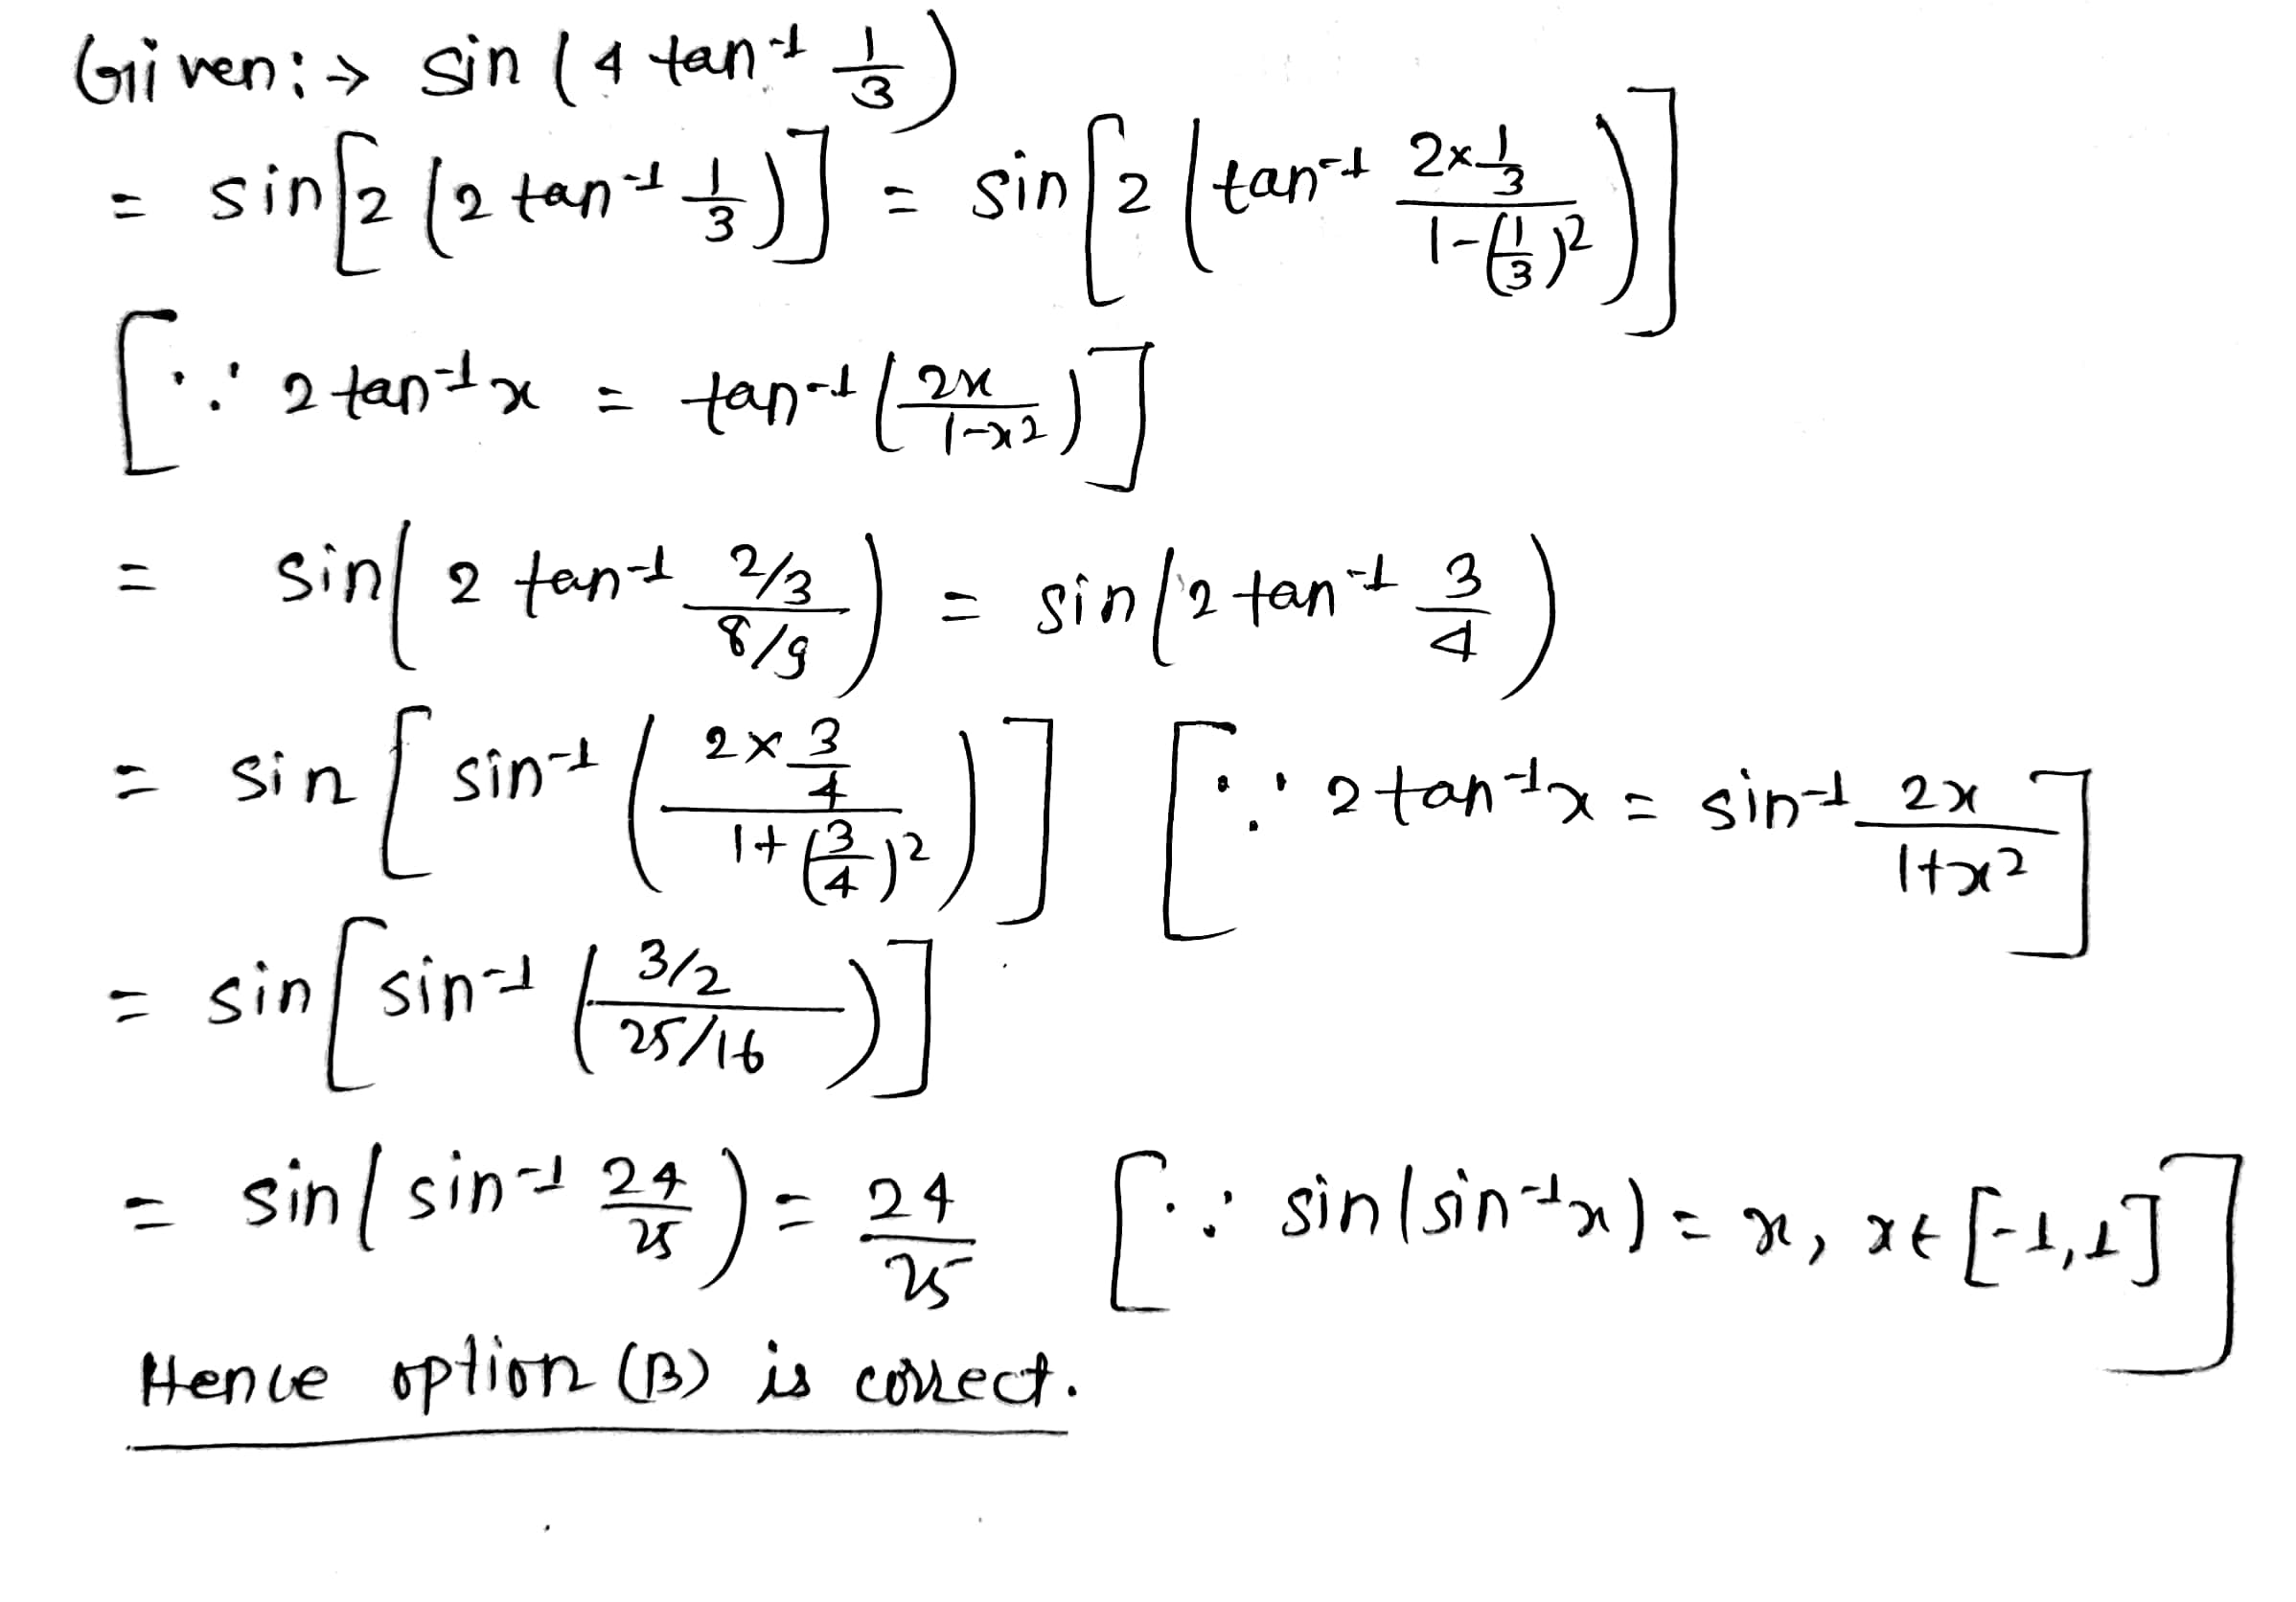 Given :→ sin (4 tan⁻¹ 1/3)
= sin[2 (2 tan⁻¹ 1/3)] = sin[2 (tan⁻¹ (2×1/3)/(1-(1/3)²))]
[∵ 2 tan⁻¹x = tan⁻¹ (2x/(1-x²))]
= sin(2 tan⁻¹ (2/3)/(8/9)) = sin(2 tan⁻¹ 3/4)
= sin [sin⁻¹ ((2×3/4)/(1+(3/4)²))] [∵ 2 tan⁻¹x = sin⁻¹ 2x/(1+x²)]
= sin[sin⁻¹ ((3/2)/(25/16))]
= sin(sin⁻¹ 24/25) = 24/25 [∵ sin(sin⁻¹x) = x, x∈[-1,1]]
Hence option (B) is correct.